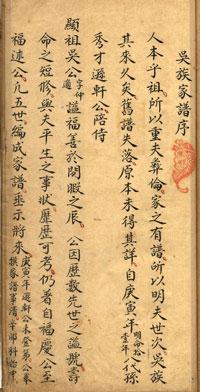 吳族家譜序
人本乎祖所以重夫彝倫家之有譜所以明夫世次吳族
其來久矣舊譜失落原本未得其詳自庚寅年代孫
秀才遜軒公陪侍
顯祖吳公字仲謚福善於閒暇之辰公因歷數先世之謚號壽
命之短脩與夫平生之事狀歷歷可考仍著自福慶公至
福述公凡五世編成家譜垂示將來庚寅年遜軒公